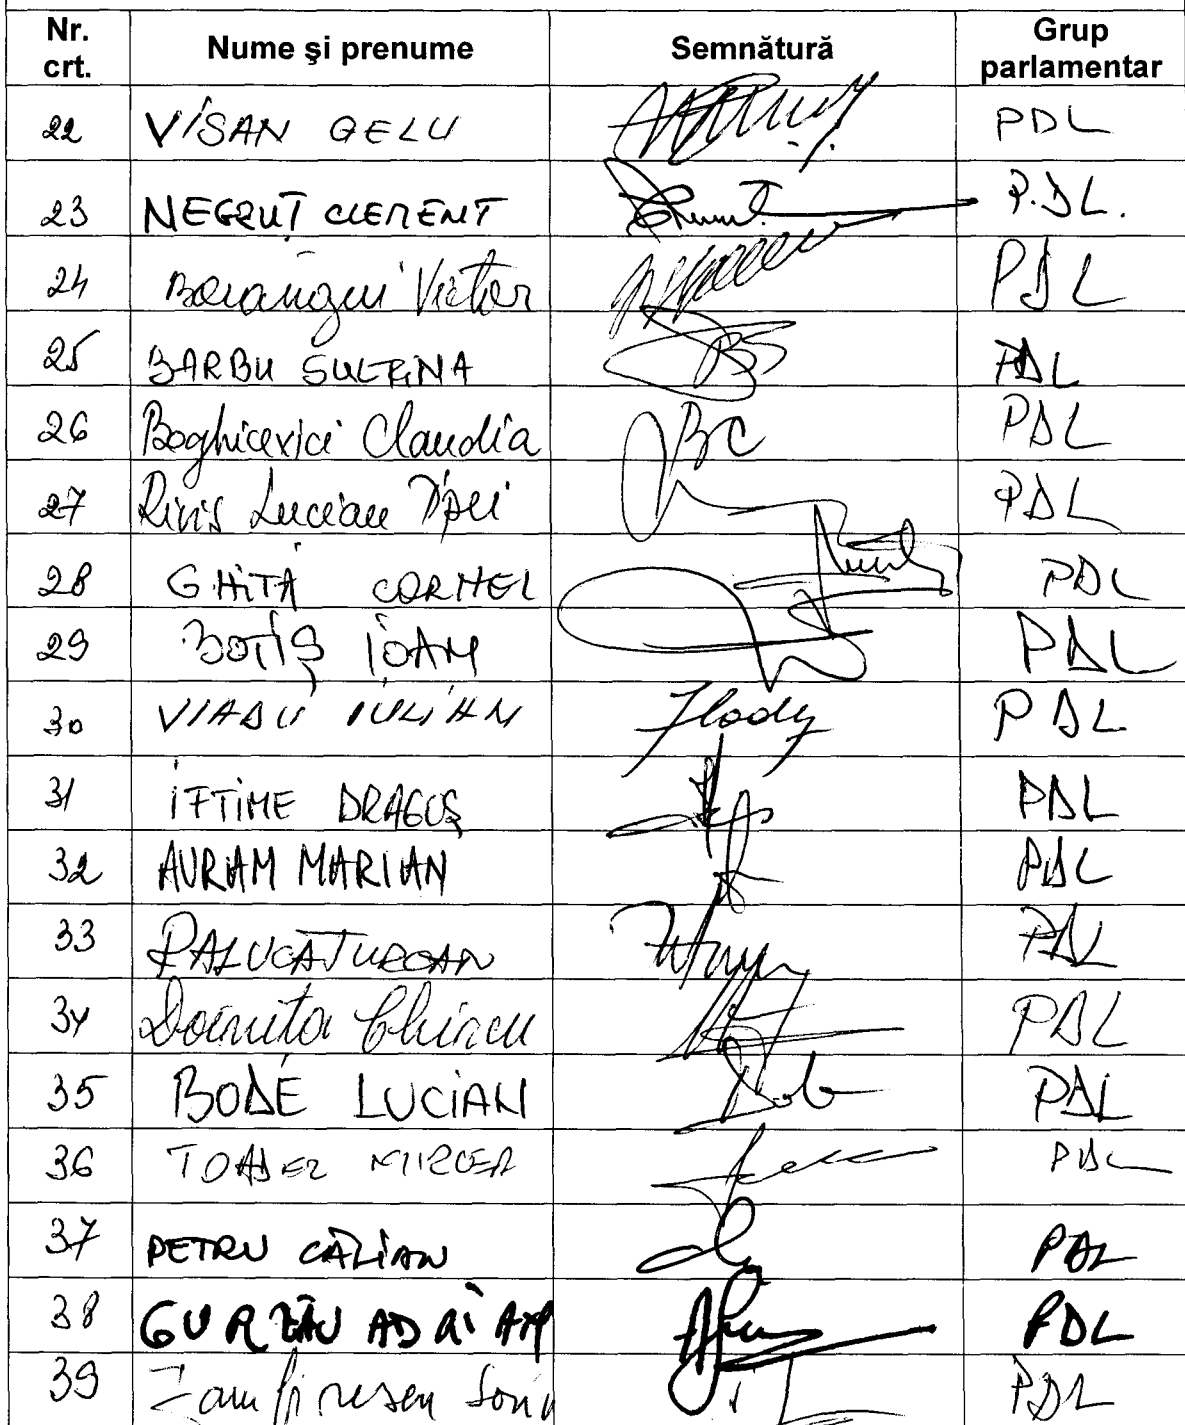 Nr. crt. Nume şi prenume Semnătură Grup parlamentar
22 VISAN GELU PDL
23 NEGRUȚ CLEMENT P.DL.
24 Boiangiu Victor PDL
25 BARBU SULFINA PDL
26 Boghicevici Claudia PDL
27 Riviș Lucian PDL
28 GHIȚĂ CORNEL PDL
29 BOTIȘ IOAN PDL
30 VLADU IULIAN PDL
31 IFTIME DRAGOȘ PDL
32 AVRAM MARIAN PDL
33 RALUCA TURCAN PDL
34 Doinița Chircu PDL
35 BODE LUCIAN PDL
36 TOADER MIRCEA PDL
37 PETRU CĂLIAN PDL
38 GURZĂU ADRIAN PDL
39 Zamfirescu Sorin PDL